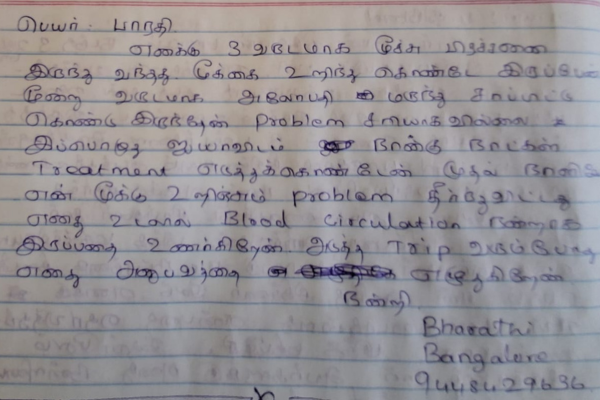 பெயர் : பாரதி
எனக்கு 3 வருடமாக மூச்சு பிரச்சனை
இருந்து வந்தது மூக்கை உறிந்து கொண்டே இருப்பேன்
மூன்று வருடமாக அலோபதி மருந்து சாப்பிட்டு
கொண்டு இருந்தேன் Problem சரியாகவில்லை
இப்பொழுது ஐயாவிடம் நான்கு நாட்கள்
Treatment எடுத்துக்கொண்டேன் முதல் நாளில்
என் மூக்கு உறிஞ்சும் problem தீர்ந்துவிட்டது
எனது உடலில் Blood Circulation நன்றாக
இருப்பதை உணர்கிறேன் அடுத்த Trip வரும்போது
எனது அனுபவத்தை எழுதுகிறேன்
நன்றி
Bharathi
Bangalore
9448429636